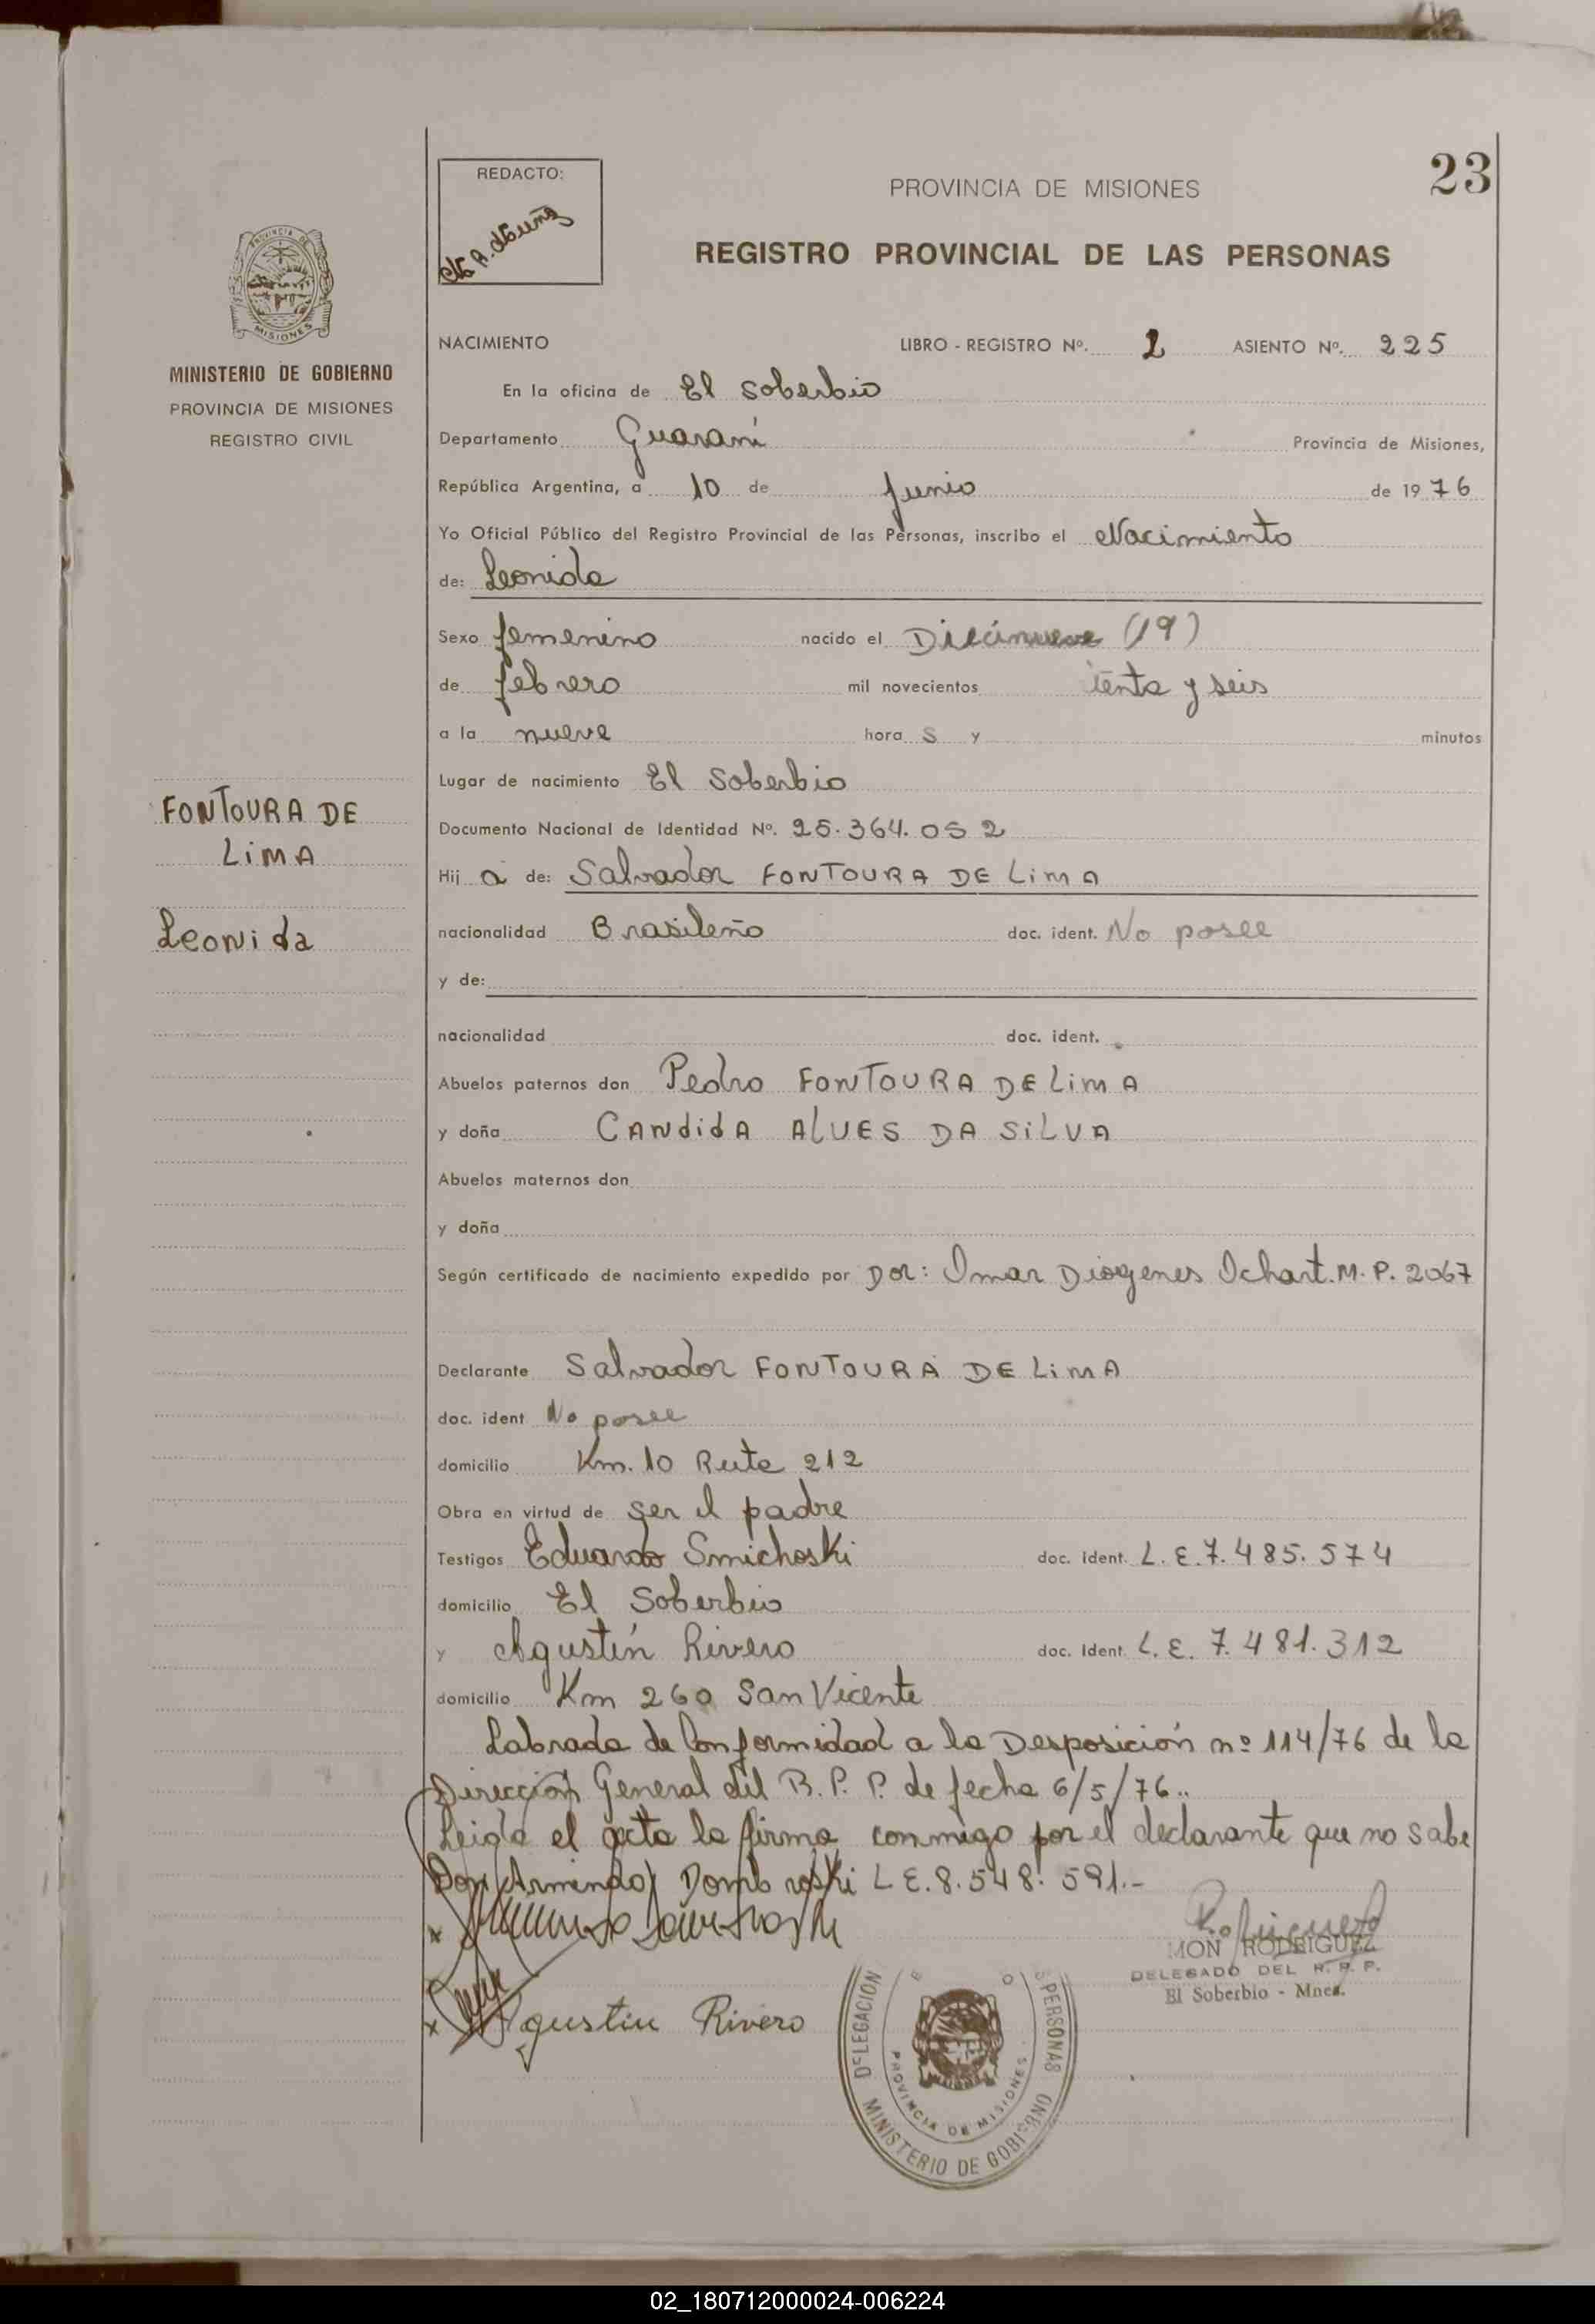 23
REDACTO:
PROVINCIA DE MISIONES
REGISTRO PROVINCIAL DE LAS PERSONAS
PROVINCIA DE
MISIONES
MINISTERIO DE GOBIERNO
PROVINCIA DE MISIONES
REGISTRO CIVIL
NACIMIENTO LIBRO - REGISTRO Nº. 2 ASIENTO Nº. 225
En la oficina de El Soberbio
Departamento Guaraní Provincia de Misiones,
República Argentina, a 10 de Junio de 1976
Yo Oficial Público del Registro Provincial de las Personas, inscribo el Nacimiento
de: Leonida
Sexo femenino nacido el Diecinueve (19)
de febrero mil novecientos tenta y seis
a la nueve hora s y minutos
Lugar de nacimiento El Soberbio
FONTOURA DE
LIMA
Leonida
Documento Nacional de Identidad Nº. 25.364.052
Hij a de: Salvador FONTOURA DE LIMA
nacionalidad Brasileño doc. ident. No posee
y de:
nacionalidad doc. ident.
Abuelos paternos don Pedro FONTOURA DE LIMA
y doña CANDIDA ALVES DA SILVA
Abuelos maternos don
y doña
Según certificado de nacimiento expedido por Dor: Omar Diogenes Ochart. M. P. 2067
Declarante Salvador FONTOURA DE LIMA
doc. ident No posee
domicilio Km. 10 Ruta 212
Obra en virtud de ser el padre
Testigos Eduardo Smichoski doc. ident. L. E. 7.485.574
domicilio El Soberbio
y Agustín Rivero doc. ident. L. E. 7.481.312
domicilio Km 260 San Vicente
Labrada de Conformidad a la Desposición nº 114/76 de la
Dirección General del R. P. P. de fecha 6/5/76..
Leida el acta la firma conmigo por el declarante que no sabe
Don Armindo Dombroski L E. 8.548.591.-
x
MON RODRIGUEZ
DELEGADO DEL R. P. P.
El Soberbio - Mnes.
x Agustin Rivero
DELEGACION PERSONAS
PROVINCIA DE MISIONES
MINISTERIO DE GOBIERNO
02_180712000024-006224